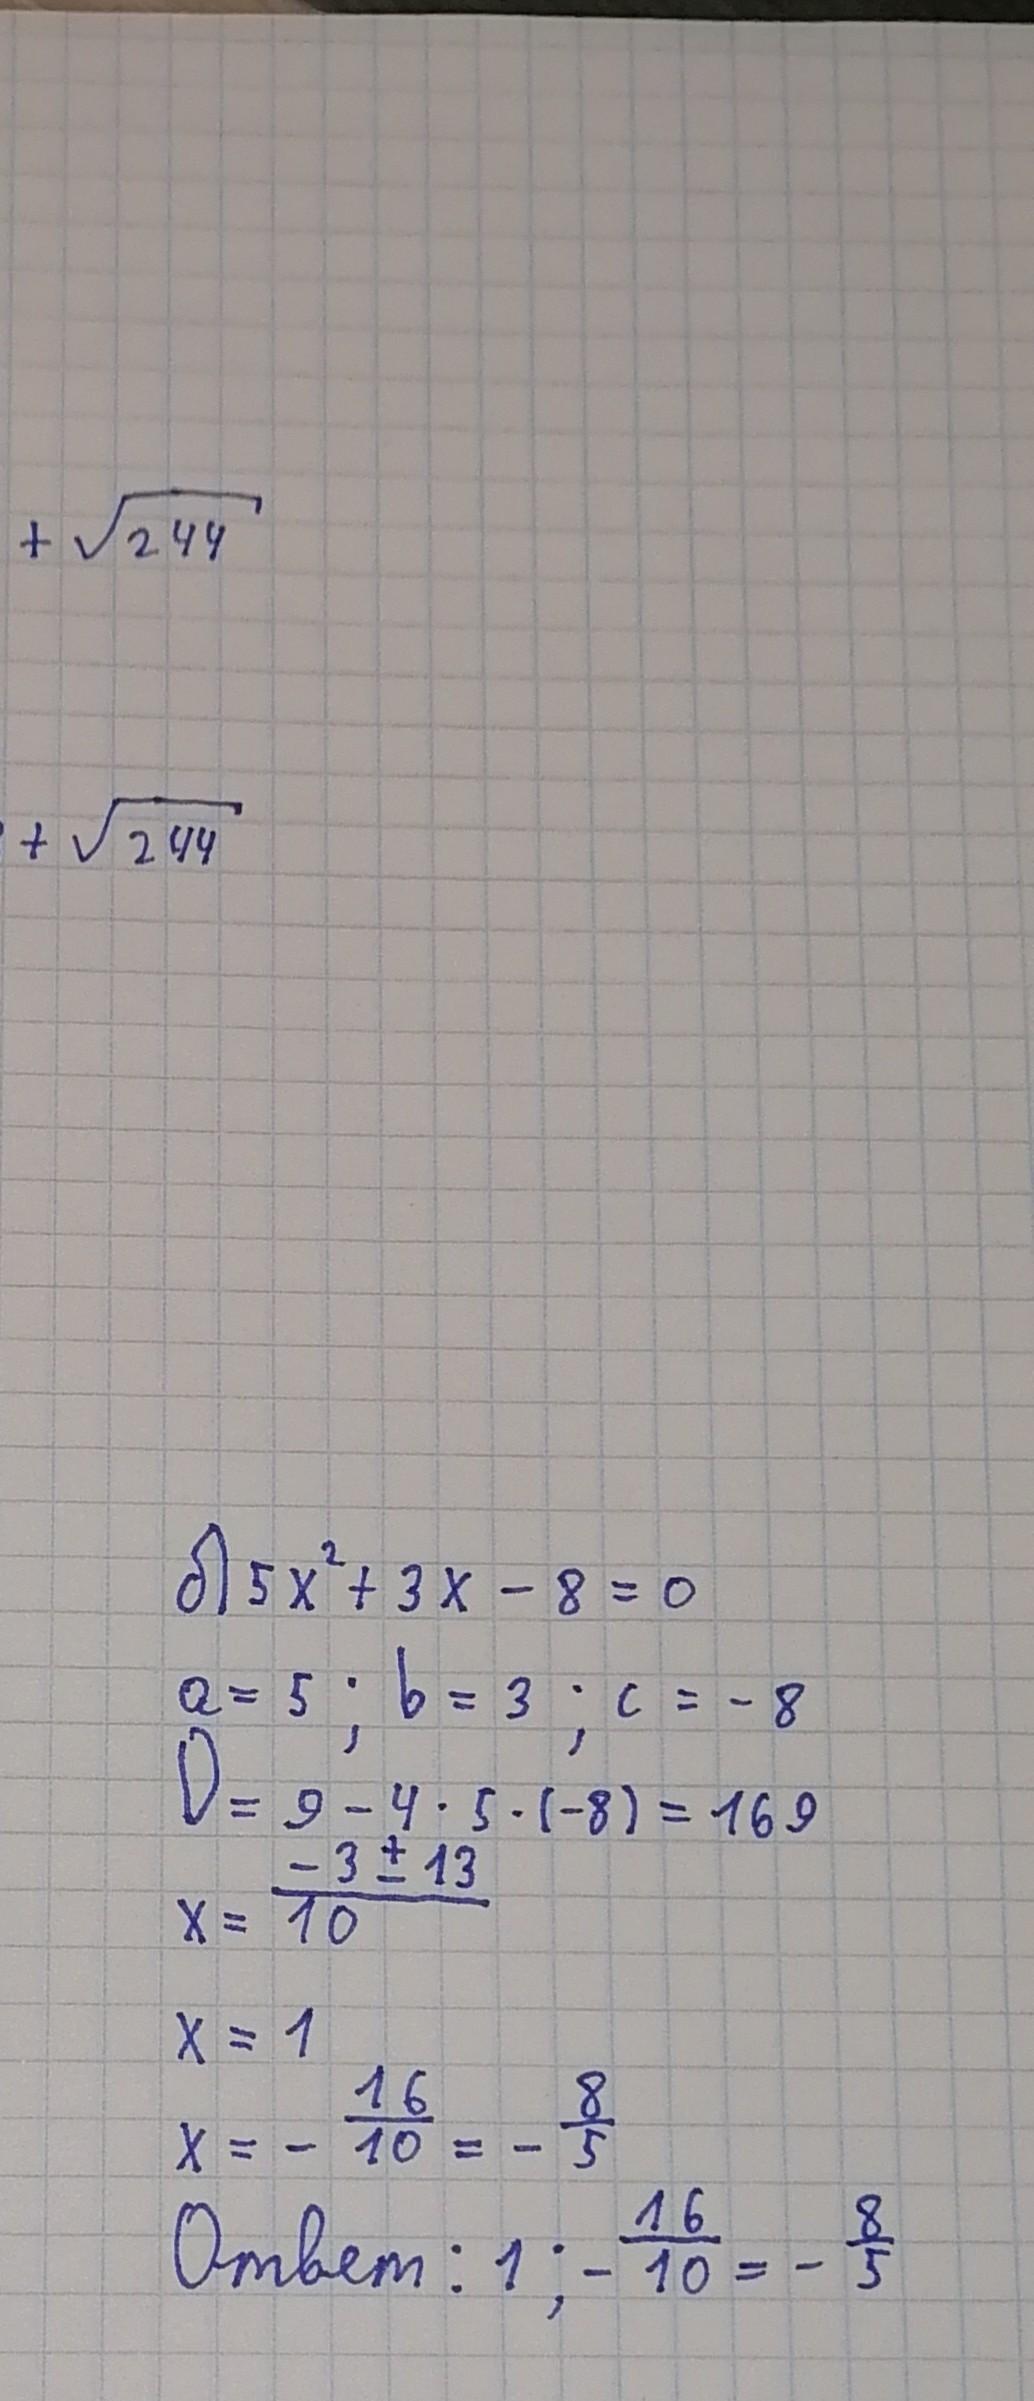 + √244
+ √244
б) 5x² + 3x - 8 = 0
a = 5 ; b = 3 ; c = - 8
D = 9 - 4 · 5 · (-8) = 169
x = (-3 ± 13)/10
x = 1
x = - 16/10 = - 8/5
Ответ: 1 ; - 16/10 = - 8/5